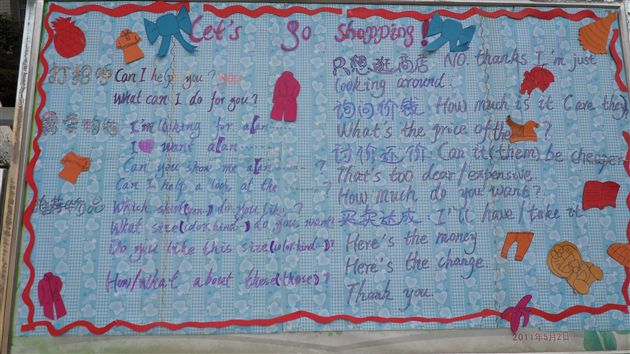 Let's go shopping!
打招呼 Can I help you?
What can I do for you?
I'm looking for a/an......
I want a/an......
Can you show me a/an......?
Can I help a look at the ......?
Which do you like?
What size(color.kind..) do you want?
Do you like this size(color.kind...)?
How/What about these(those)?
只想逛商店 NO. thanks I'm just
looking around.
询问价钱. How much is it (are they
What's the price of the ?
讨价还价. Can it(them) be cheaper
That's too dear/expensive.
How much do you want?
买卖达成. I'll have/take it
Here's the money
Here's the change.
Thank you.
2011年5月2日